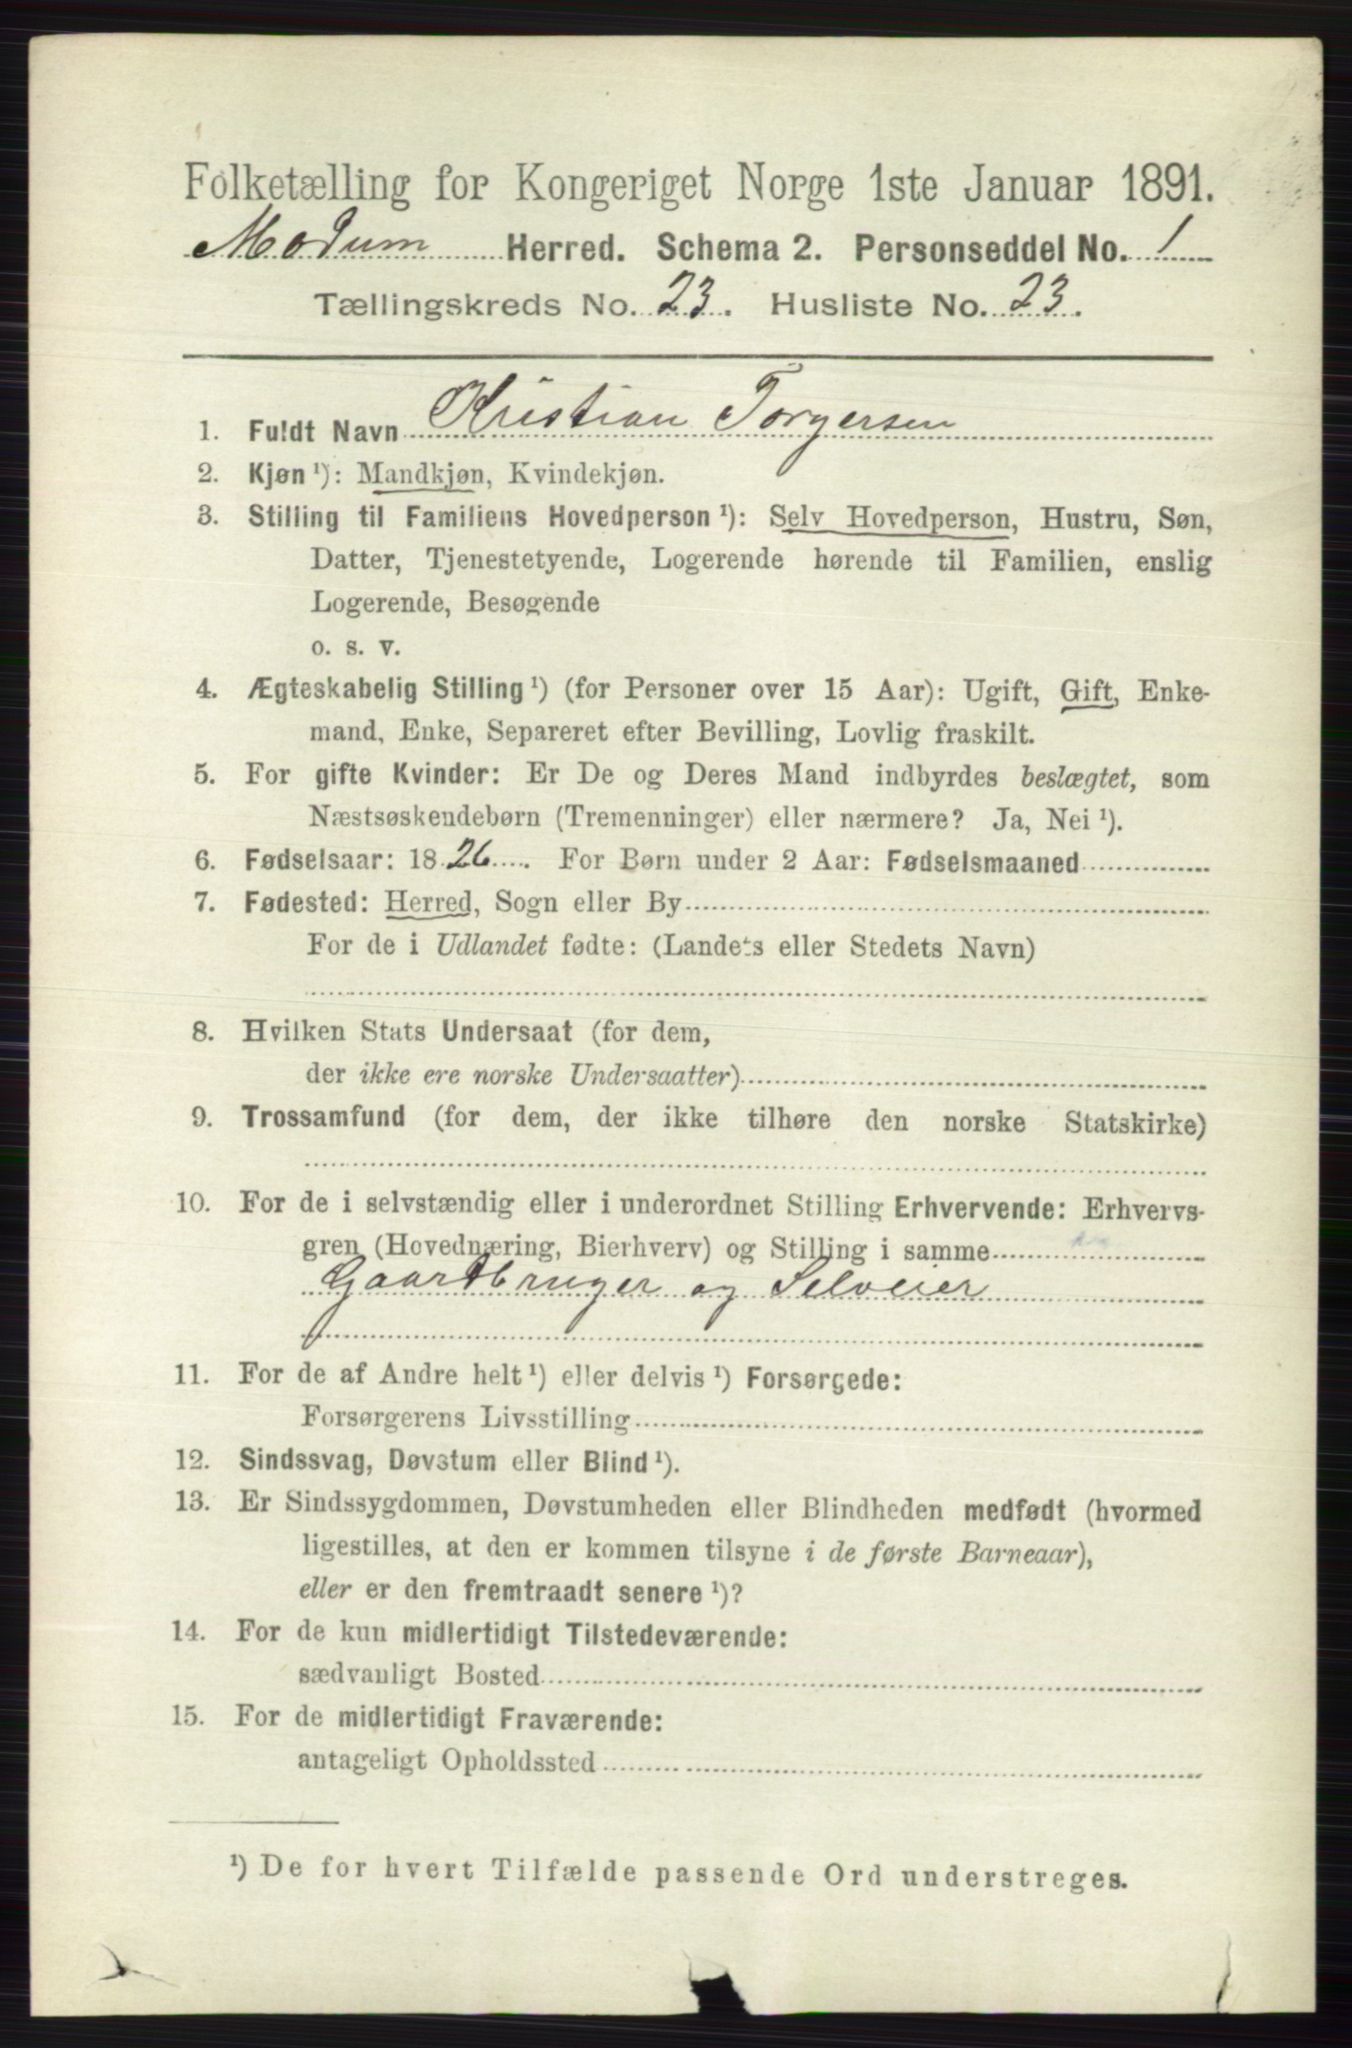 Folketælling for Kongeriget Norge 1ste Januar 1891.
Modum Herred. Schema 2. Personseddel No. 1
Tællingskreds No. 23. Husliste No. 23.
1. Fuldt Navn Kristian Torgersen
2. Kjøn ¹): Mandkjøn, Kvindekjøn.
3. Stilling til Familiens Hovedperson ¹): Selv Hovedperson, Hustru, Søn,
Datter, Tjenestetyende, Logerende hørende til Familien, enslig
Logerende, Besøgende
o. s. v.
4. Ægteskabelig Stilling ¹) (for Personer over 15 Aar): Ugift, Gift, Enke-
mand, Enke, Separeret efter Bevilling, Lovlig fraskilt.
5. For gifte Kvinder: Er De og Deres Mand indbyrdes beslægtet, som
Næstsøskendebørn (Tremenninger) eller nærmere? Ja, Nei ¹).
6. Fødselsaar: 1826. For Børn under 2 Aar: Fødselsmaaned
7. Fødested: Herred, Sogn eller By
For de i Udlandet fødte: (Landets eller Stedets Navn)
8. Hvilken Stats Undersaat (for dem,
der ikke ere norske Undersaatter)
9. Trossamfund (for dem, der ikke tilhøre den norske Statskirke)
10. For de i selvstændig eller i underordnet Stilling Erhvervende: Erhvervs-
gren (Hovednæring, Bierhverv) og Stilling i samme
Gaardbruger og Selveier
11. For de af Andre helt ¹) eller delvis ¹) Forsørgede:
Forsørgerens Livsstilling
12. Sindssvag, Døvstum eller Blind ¹).
13. Er Sindssygdommen, Døvstumheden eller Blindheden medfødt (hvormed
ligestilles, at den er kommen tilsyne i de første Barneaar),
eller er den fremtraadt senere ¹)?
14. For de kun midlertidigt Tilstedeværende:
sædvanligt Bosted
15. For de midlertidigt Fraværende:
antageligt Opholdssted
¹) De for hvert Tilfælde passende Ord understreges.